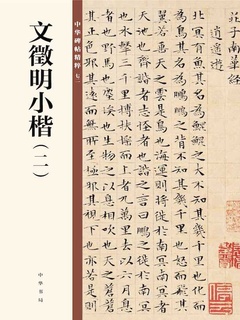 中华碑帖精粹
文徵明小楷（二）
中华书局
莊子南華
逍遙遊
北冥有魚其名為鯤鯤之大不知其幾千里也化而
為鳥其名為鵬鵬之背不知其幾千里也怒而飛其
翼若垂天之雲是鳥也海運則將徙於南冥南冥者
天池也齊諧者志怪者也諧之言曰鵬之徙於南冥
也水擊三千里摶扶搖而上者九萬里去以六月息
者也野馬也塵埃也生物之以息相吹也天之蒼蒼
其正色邪其遠而無所至極邪其視下也亦若是則